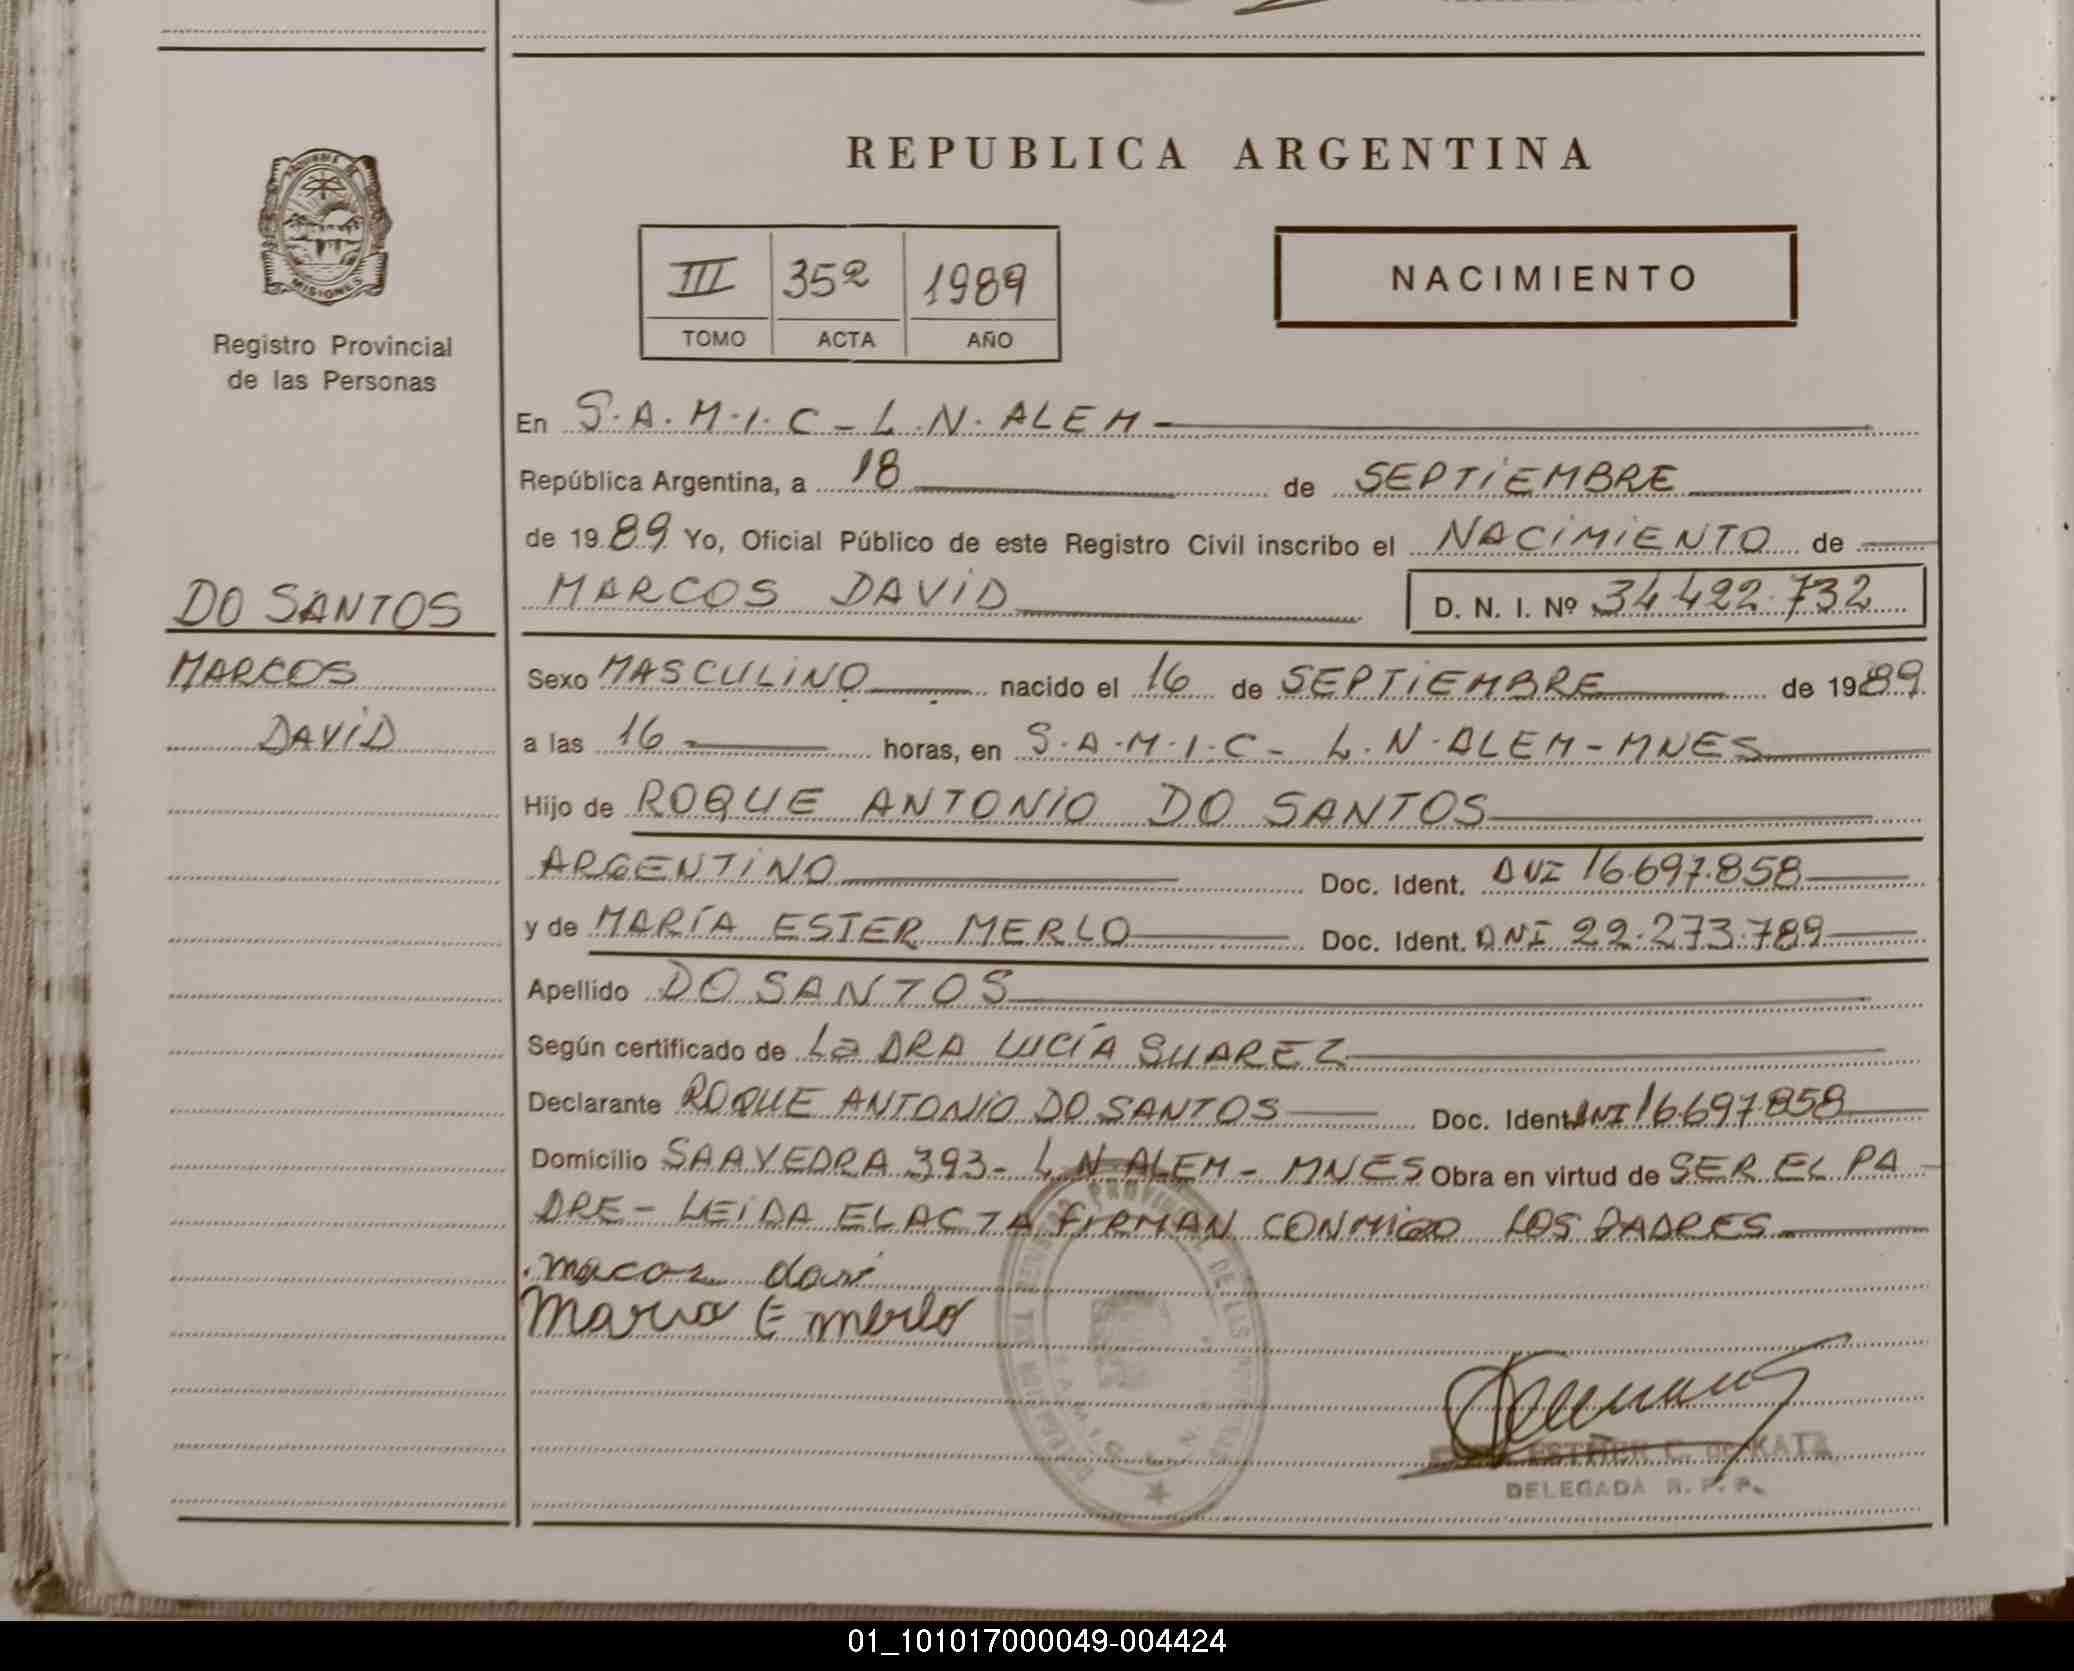 REPUBLICA ARGENTINA
MISIONES
Registro Provincial
de las Personas
III 352 1989
TOMO ACTA AÑO
NACIMIENTO
En S.A.M.I.C - L.N. ALEM
República Argentina, a 18 de SEPTIEMBRE
de 1989 Yo, Oficial Público de este Registro Civil inscribo el NACIMIENTO de
DO SANTOS
MARCOS
DAVID
MARCOS DAVID D. N. I. Nº 34.422.732
Sexo MASCULINO nacido el 16 de SEPTIEMBRE de 1989
a las 16 horas, en S.A.M.I.C - L.N. ALEM - MNES
Hijo de ROQUE ANTONIO DO SANTOS
ARGENTINO Doc. Ident. DNI 16.697.858
y de MARÍA ESTER MERLO Doc. Ident. DNI 22.273.789
Apellido DO SANTOS
Según certificado de La DRA LUCÍA SUAREZ
Declarante ROQUE ANTONIO DO SANTOS Doc. Ident. DNI 16.697.858
Domicilio SAAVEDRA 393 - L.N. ALEM - MNES Obra en virtud de SER EL PA
DRE - LEIDA EL ACTA FIRMAN CONMIGO LOS PADRES
Maria E merlo
ESTHER C. de KATZ
DELEGADA R. P. P.
01_101017000049-004424